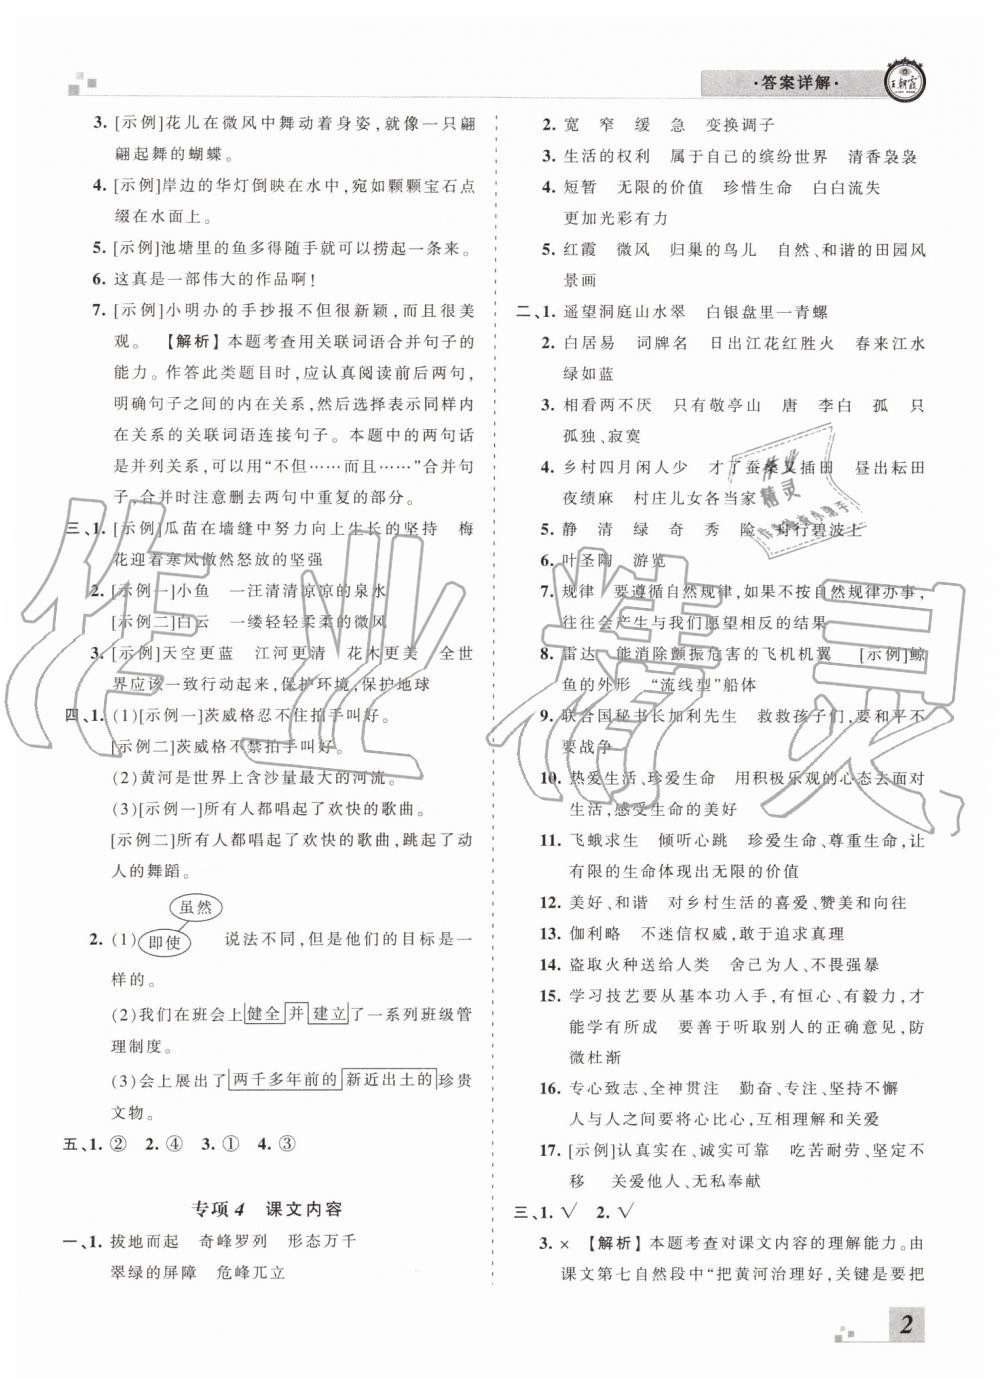 ·答案详解·
王朝霞
3. [示例]花儿在微风中舞动着身姿,就像一只翩
翩起舞的蝴蝶。
4. [示例]岸边的华灯倒映在水中,宛如颗颗宝石点
缀在水面上。
5. [示例]池塘里的鱼多得随手就可以捞起一条来。
6. 这真是一部伟大的作品啊!
7. [示例]小明办的手抄报不但很新颖,而且很美
观。 【解析】本题考查用关联词语合并句子的
能力。作答此类题目时,应认真阅读前后两句,
明确句子之间的内在关系,然后选择表示同样内
在关系的关联词语连接句子。本题中的两句话
是并列关系,可以用“不但……而且……”合并句
子,合并时注意删去两句中重复的部分。
三、1. [示例]瓜苗在墙缝中努力向上生长的坚持 梅
花迎着寒风傲然怒放的坚强
2. [示例一]小鱼 一汪清清凉凉的泉水
[示例二]白云 一缕轻轻柔柔的微风
3. [示例]天空更蓝 江河更清 花木更美 全世
界应该一致行动起来,保护环境,保护地球
四、1. (1)[示例一]茨威格忍不住拍手叫好。
[示例二]茨威格不禁拍手叫好。
(2)黄河是世界上含沙量最大的河流。
(3)[示例一]所有人都唱起了欢快的歌曲。
[示例二]所有人都唱起了欢快的歌曲,跳起了动
人的舞蹈。
虽然
2. (1)即使 说法不同,但是他们的目标是一
样的。
(2)我们在班会上健全并建立了一系列班级管
理制度。
(3)会上展出了两千多年前的新近出土的珍贵
文物。
五、1. ② 2. ④ 3. ① 4. ③
专项4 课文内容
一、1. 拔地而起 奇峰罗列 形态万千
翠绿的屏障 危峰兀立
2. 宽 窄 缓 急 变换调子
3. 生活的权利 属于自己的缤纷世界 清香袅袅
4. 短暂 无限的价值 珍惜生命 白白流失
更加光彩有力
5. 红霞 微风 归巢的鸟儿 自然、和谐的田园风
景画
二、1. 遥望洞庭山水翠 白银盘里一青螺
2. 白居易 词牌名 日出江花红胜火 春来江水
绿如蓝
3. 相看两不厌 只有敬亭山 唐 李白 孤 只
孤独、寂寞
4. 乡村四月闲人少 才了蚕桑又插田 昼出耘田
夜绩麻 村庄儿女各当家
5. 静 清 绿 奇 秀 险 舟行碧波上
6. 叶圣陶 游览
7. 规律 要遵循自然规律,如果不按自然规律办事,
往往会产生与我们愿望相反的结果
8. 雷达 能消除颤振危害的飞机机翼 [示例]鲸
鱼的外形 “流线型”船体
9. 联合国秘书长加利先生 救救孩子们,要和平不
要战争
10. 热爱生活、珍爱生命 用积极乐观的心态去面对
生活,感受生命的美好
11. 飞蛾求生 倾听心跳 珍爱生命、尊重生命,让
有限的生命体现出无限的价值
12. 美好、和谐 对乡村生活的喜爱、赞美和向往
13. 伽利略 不迷信权威,敢于追求真理
14. 盗取火种送给人类 舍己为人、不畏强暴
15. 学习技艺要从基本功入手,有恒心、有毅力,才
能学有所成 要善于听取别人的正确意见,防
微杜渐
16. 专心致志、全神贯注 勤奋、专注、坚持不懈
人与人之间要将心比心,互相理解和关爱
17. [示例]认真实在、诚实可靠 吃苦耐劳、坚定不
移 关爱他人、无私奉献
三、1. √ 2. √
3. × 【解析】本题考查对课文内容的理解能力。由
课文第七自然段中“把黄河治理好,关键是要把
2
作业精灵